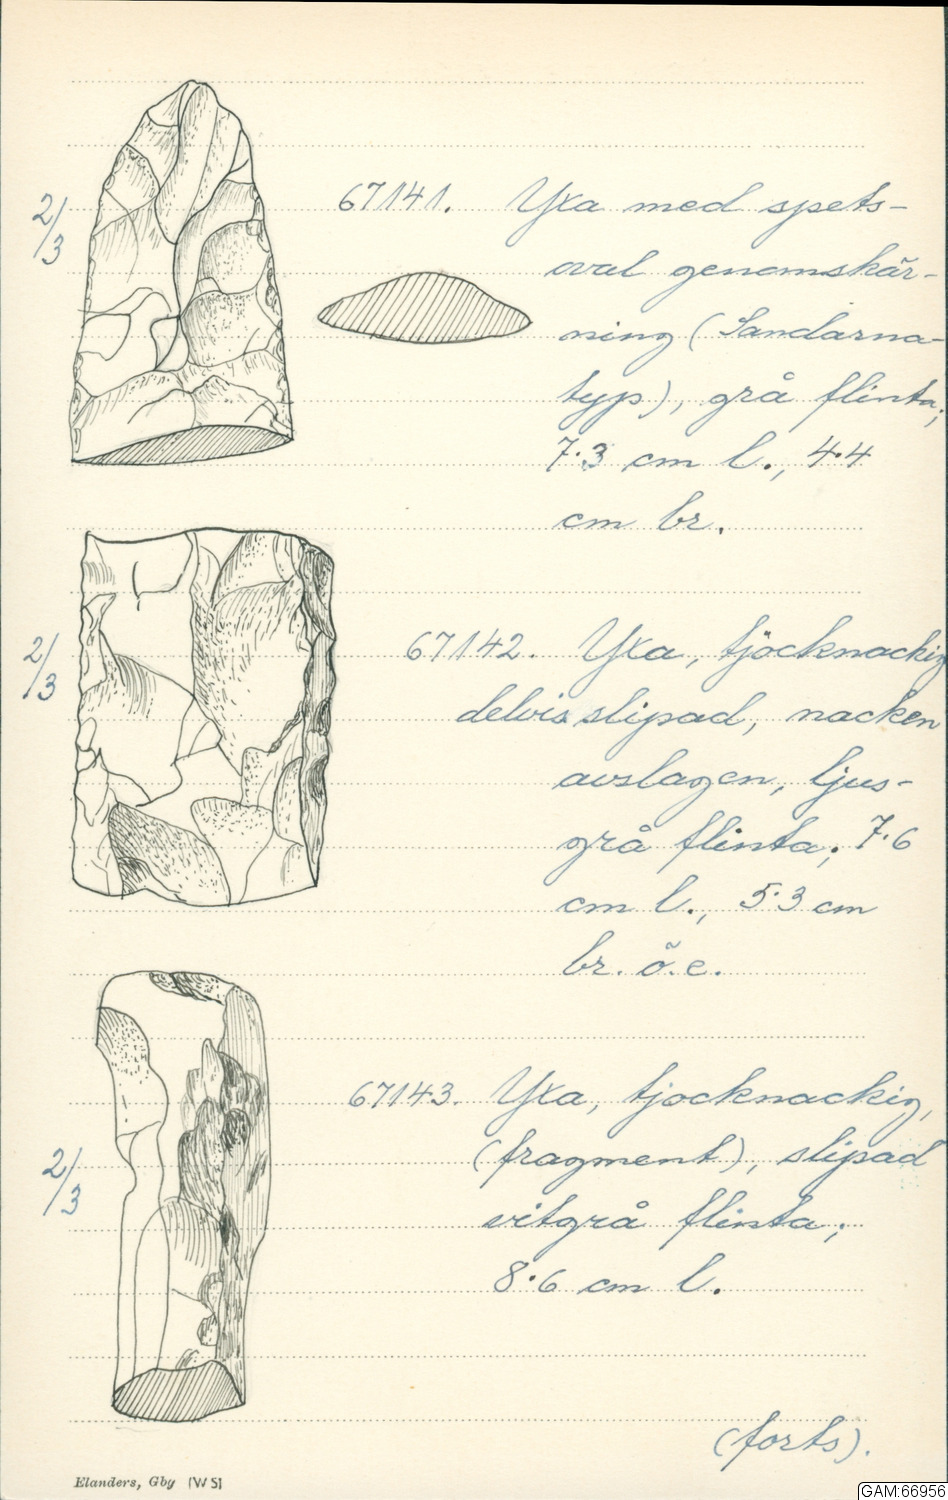 2/3
67141. Yxa med spets-
oval genomskär-
ning (Sandarna-
typ), grå flinta;
7.3 cm l., 4.4
cm br.
2/3
67142. Yxa, tjocknackig
delvis slipad, nacken
avslagen, ljus-
grå flinta; 7.6
cm l., 5.3 cm
br. ö.e.
2/3
67143. Yxa, tjocknackig,
(fragment), slipad
vitgrå flinta;
8.6 cm l.
(forts).
Elanders, Gby (WS)
GAM:66956